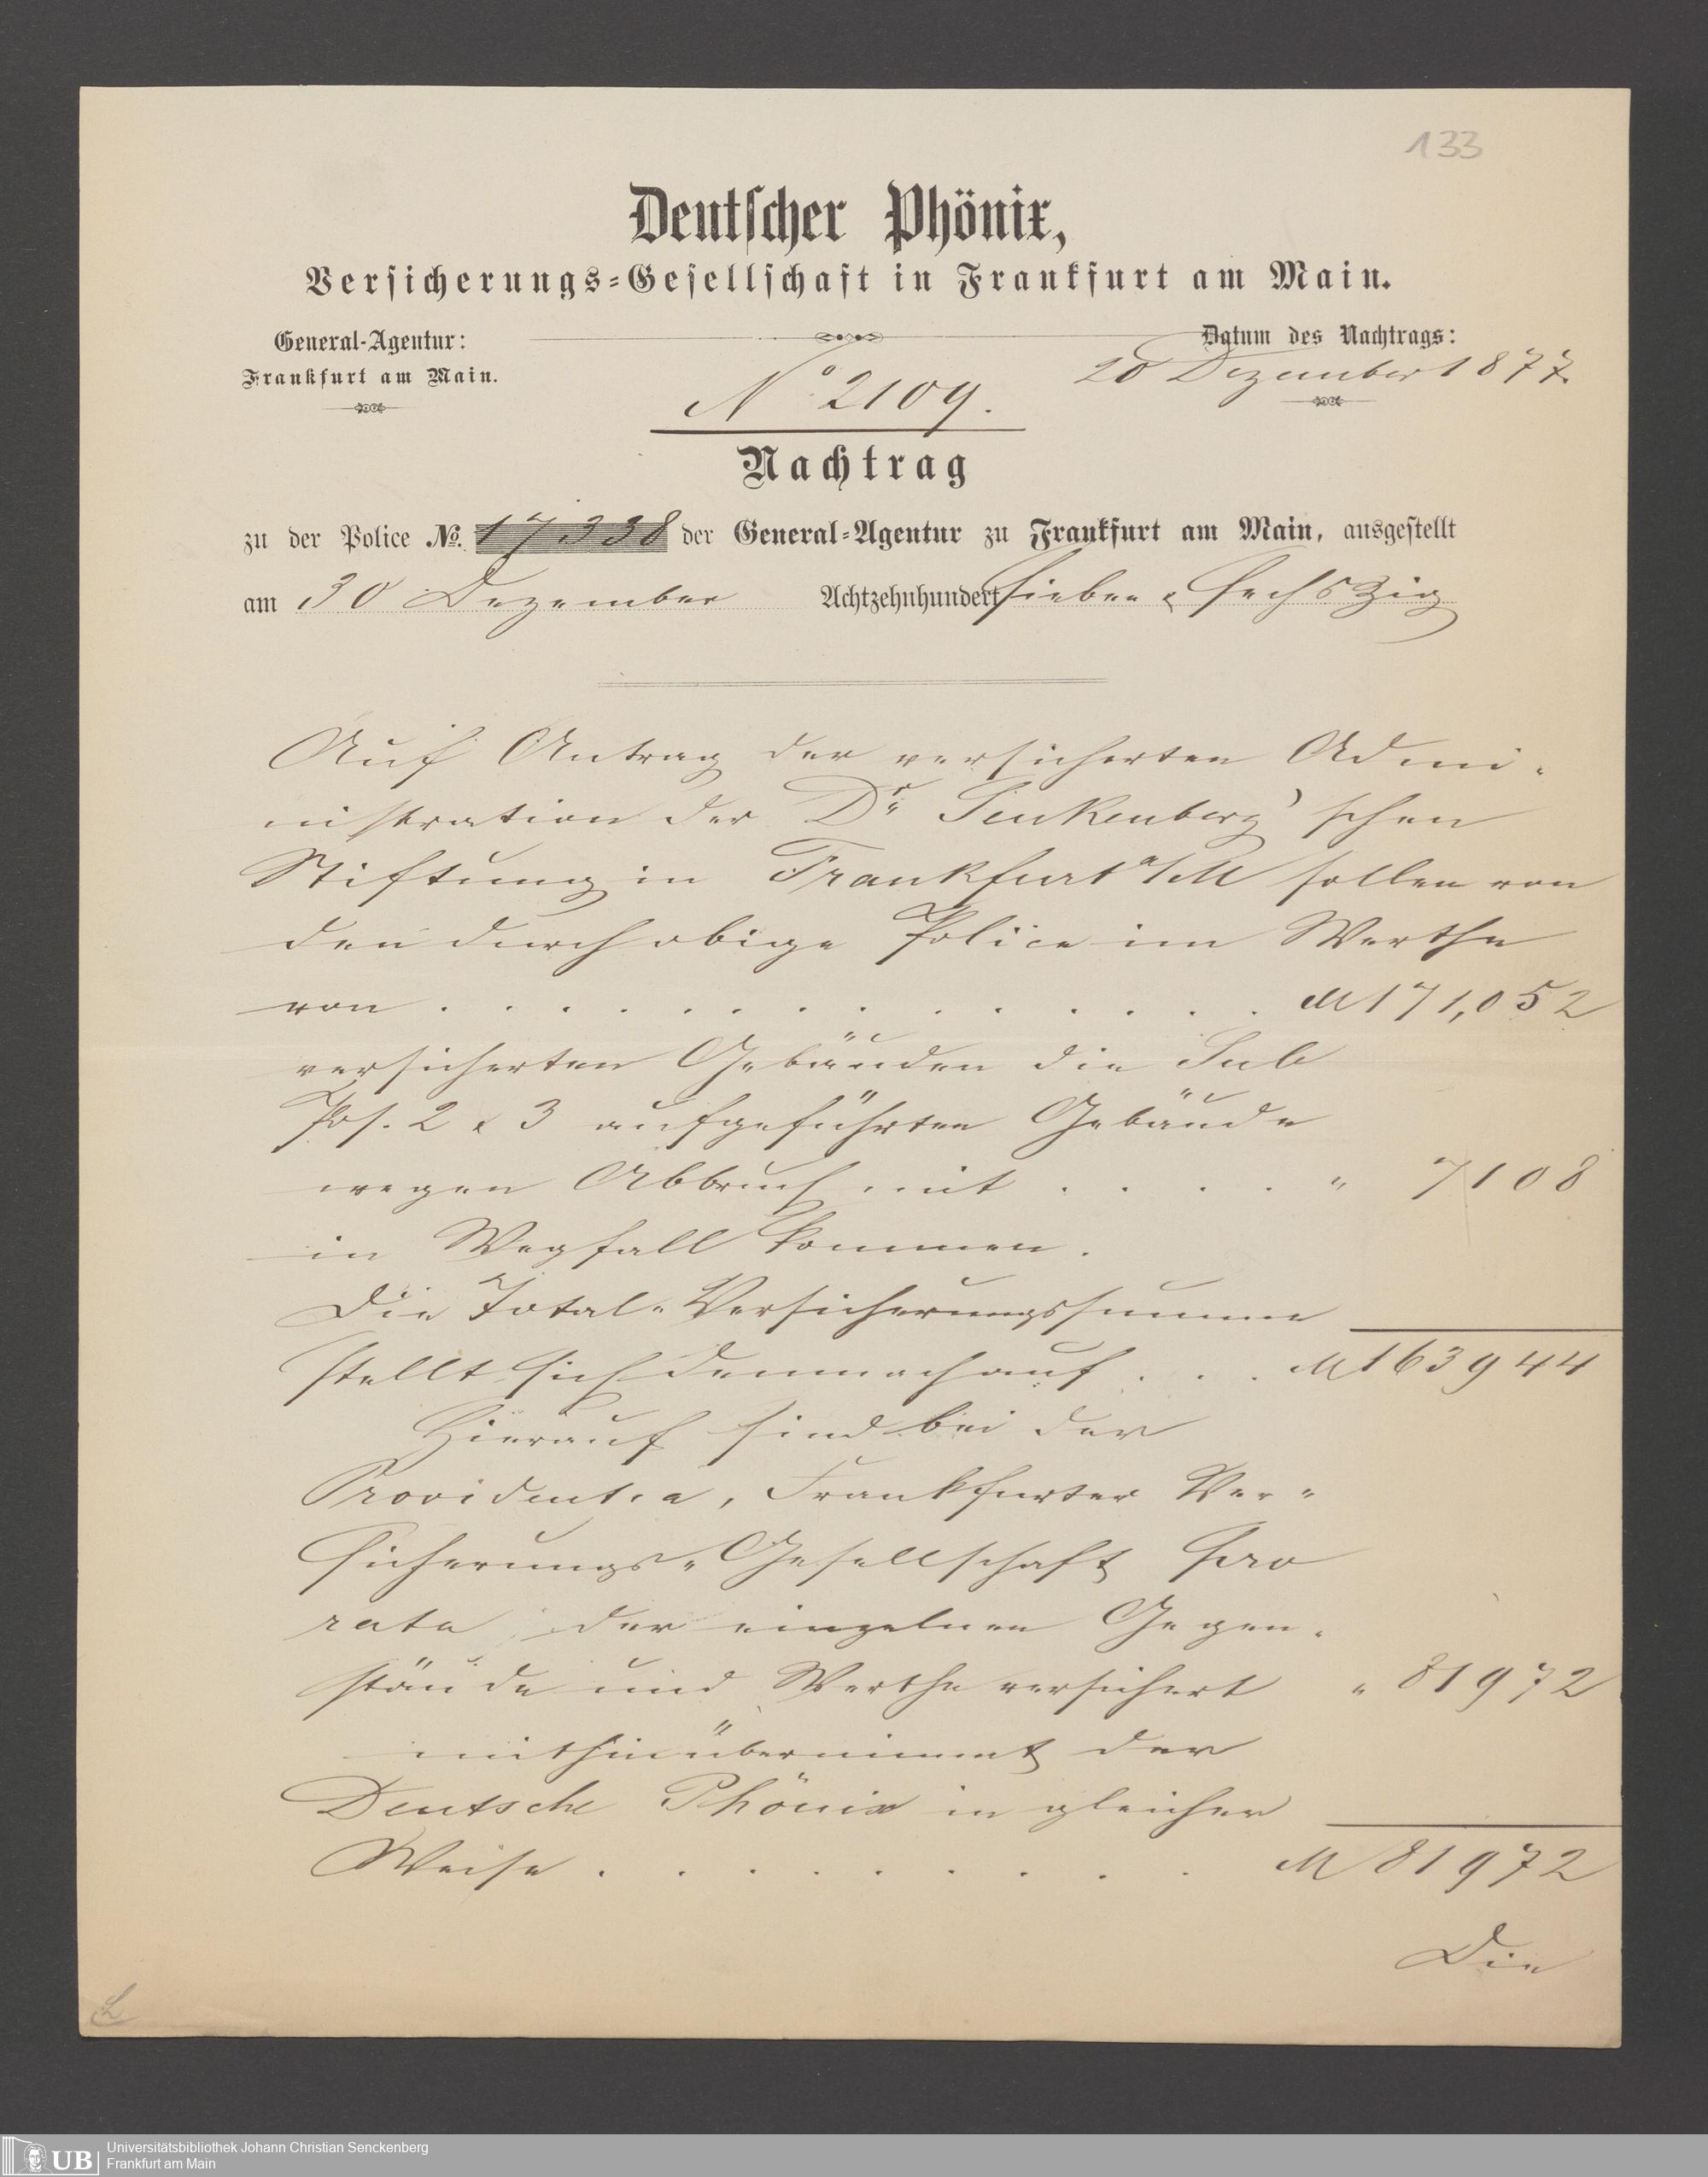 133
Deutscher Phönix,
Versicherungs-Gesellschaft in Frankfurt am Main.
General-Agentur:
Frankfurt am Main.
Datum des Nachtrags:
20 Dezember 1877.
No 2109.
Nachtrag
zu der Police No. 17338 der General-Agentur zu Frankfurt am Main, ausgestellt
am 30 Dezember Achtzehnhundert sieben & sechszig
Auf Antrag der versicherten Admi-
nistration der Dr. Senkenberg'schen
Stiftung in Frankfurt a/M sollen von
den durch obige Police im Werthe
von . . . . . . . . . . . . . . M 171,052
versicherten Gebäuden die Sub
Pos. 2 & 3 aufgeführten Gebäude
wegen Abbruch mit . . . . " 7108
in Wegfall kommen.
Die Total-Versicherungssumme
stellt sich demnach auf . . . M 163944
Hierauf sind bei der
Providentia, Frankfurter Ver-
sicherungs-Gesellschaft pro
rata der einzelnen Gegen-
stände und Werthe versichert " 81972
mithin übernimmt der
Deutsche Phönix in gleicher
Weise . . . . . . . . . M 81972
Die
UB
Universitätsbibliothek Johann Christian Senckenberg
Frankfurt am Main